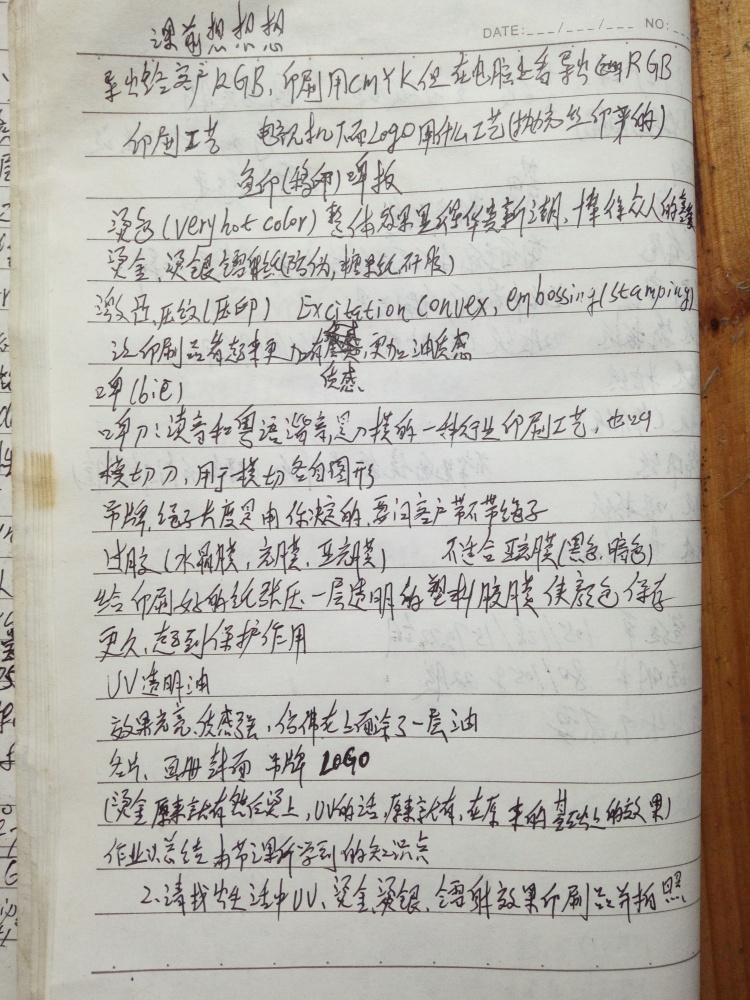 DATE: ___/___/___ NO:
课前想想想
导出给客户RGB,印刷用CMYK但在电脑上看导出RGB
印刷工艺 电视机下面LOGO用什么工艺(抛光丝印平的)
鱼印(移印)啤板
烫色(very hot color)整体效果显得华贵新潮,博得众人的喜爱
烫金,烫银镭射纸(防伪,糖果纸研服)
激凸,压纹(压印) Excitation convex, embossing(stamping)
让印刷品看起来更加有质感,更加油质感
啤(bie)
啤刀:读音和粤语谐音,是刀模的一种行业印刷工艺,也叫
模切刀,用于模切各自图形
吊牌,绳子长度是由你决定的,要问客户带不带绳子
过胶(水晶膜,光膜,亚光膜) 不适合亚光膜(黑色,暗色)
给印刷好的纸张压一层透明的塑料胶膜使颜色保存
更久,起到保护作用
UV透明油
效果光亮,质感强,仿佛在上面涂了一层油
名片、画册封面 吊牌 LOGO
(烫金原来没有然后烫上,UV的话,原来就有,在原来的基础上的效果)
作业以总结本节课所学到的知识点
2.请找出生活中UV、烫金,烫银、镭射效果印刷品并拍照